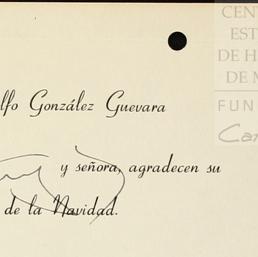 CEN
EST
DE H
DE M
FUN
Ca
lfo González Guevara
y señora, agradecen su
de la Navidad.